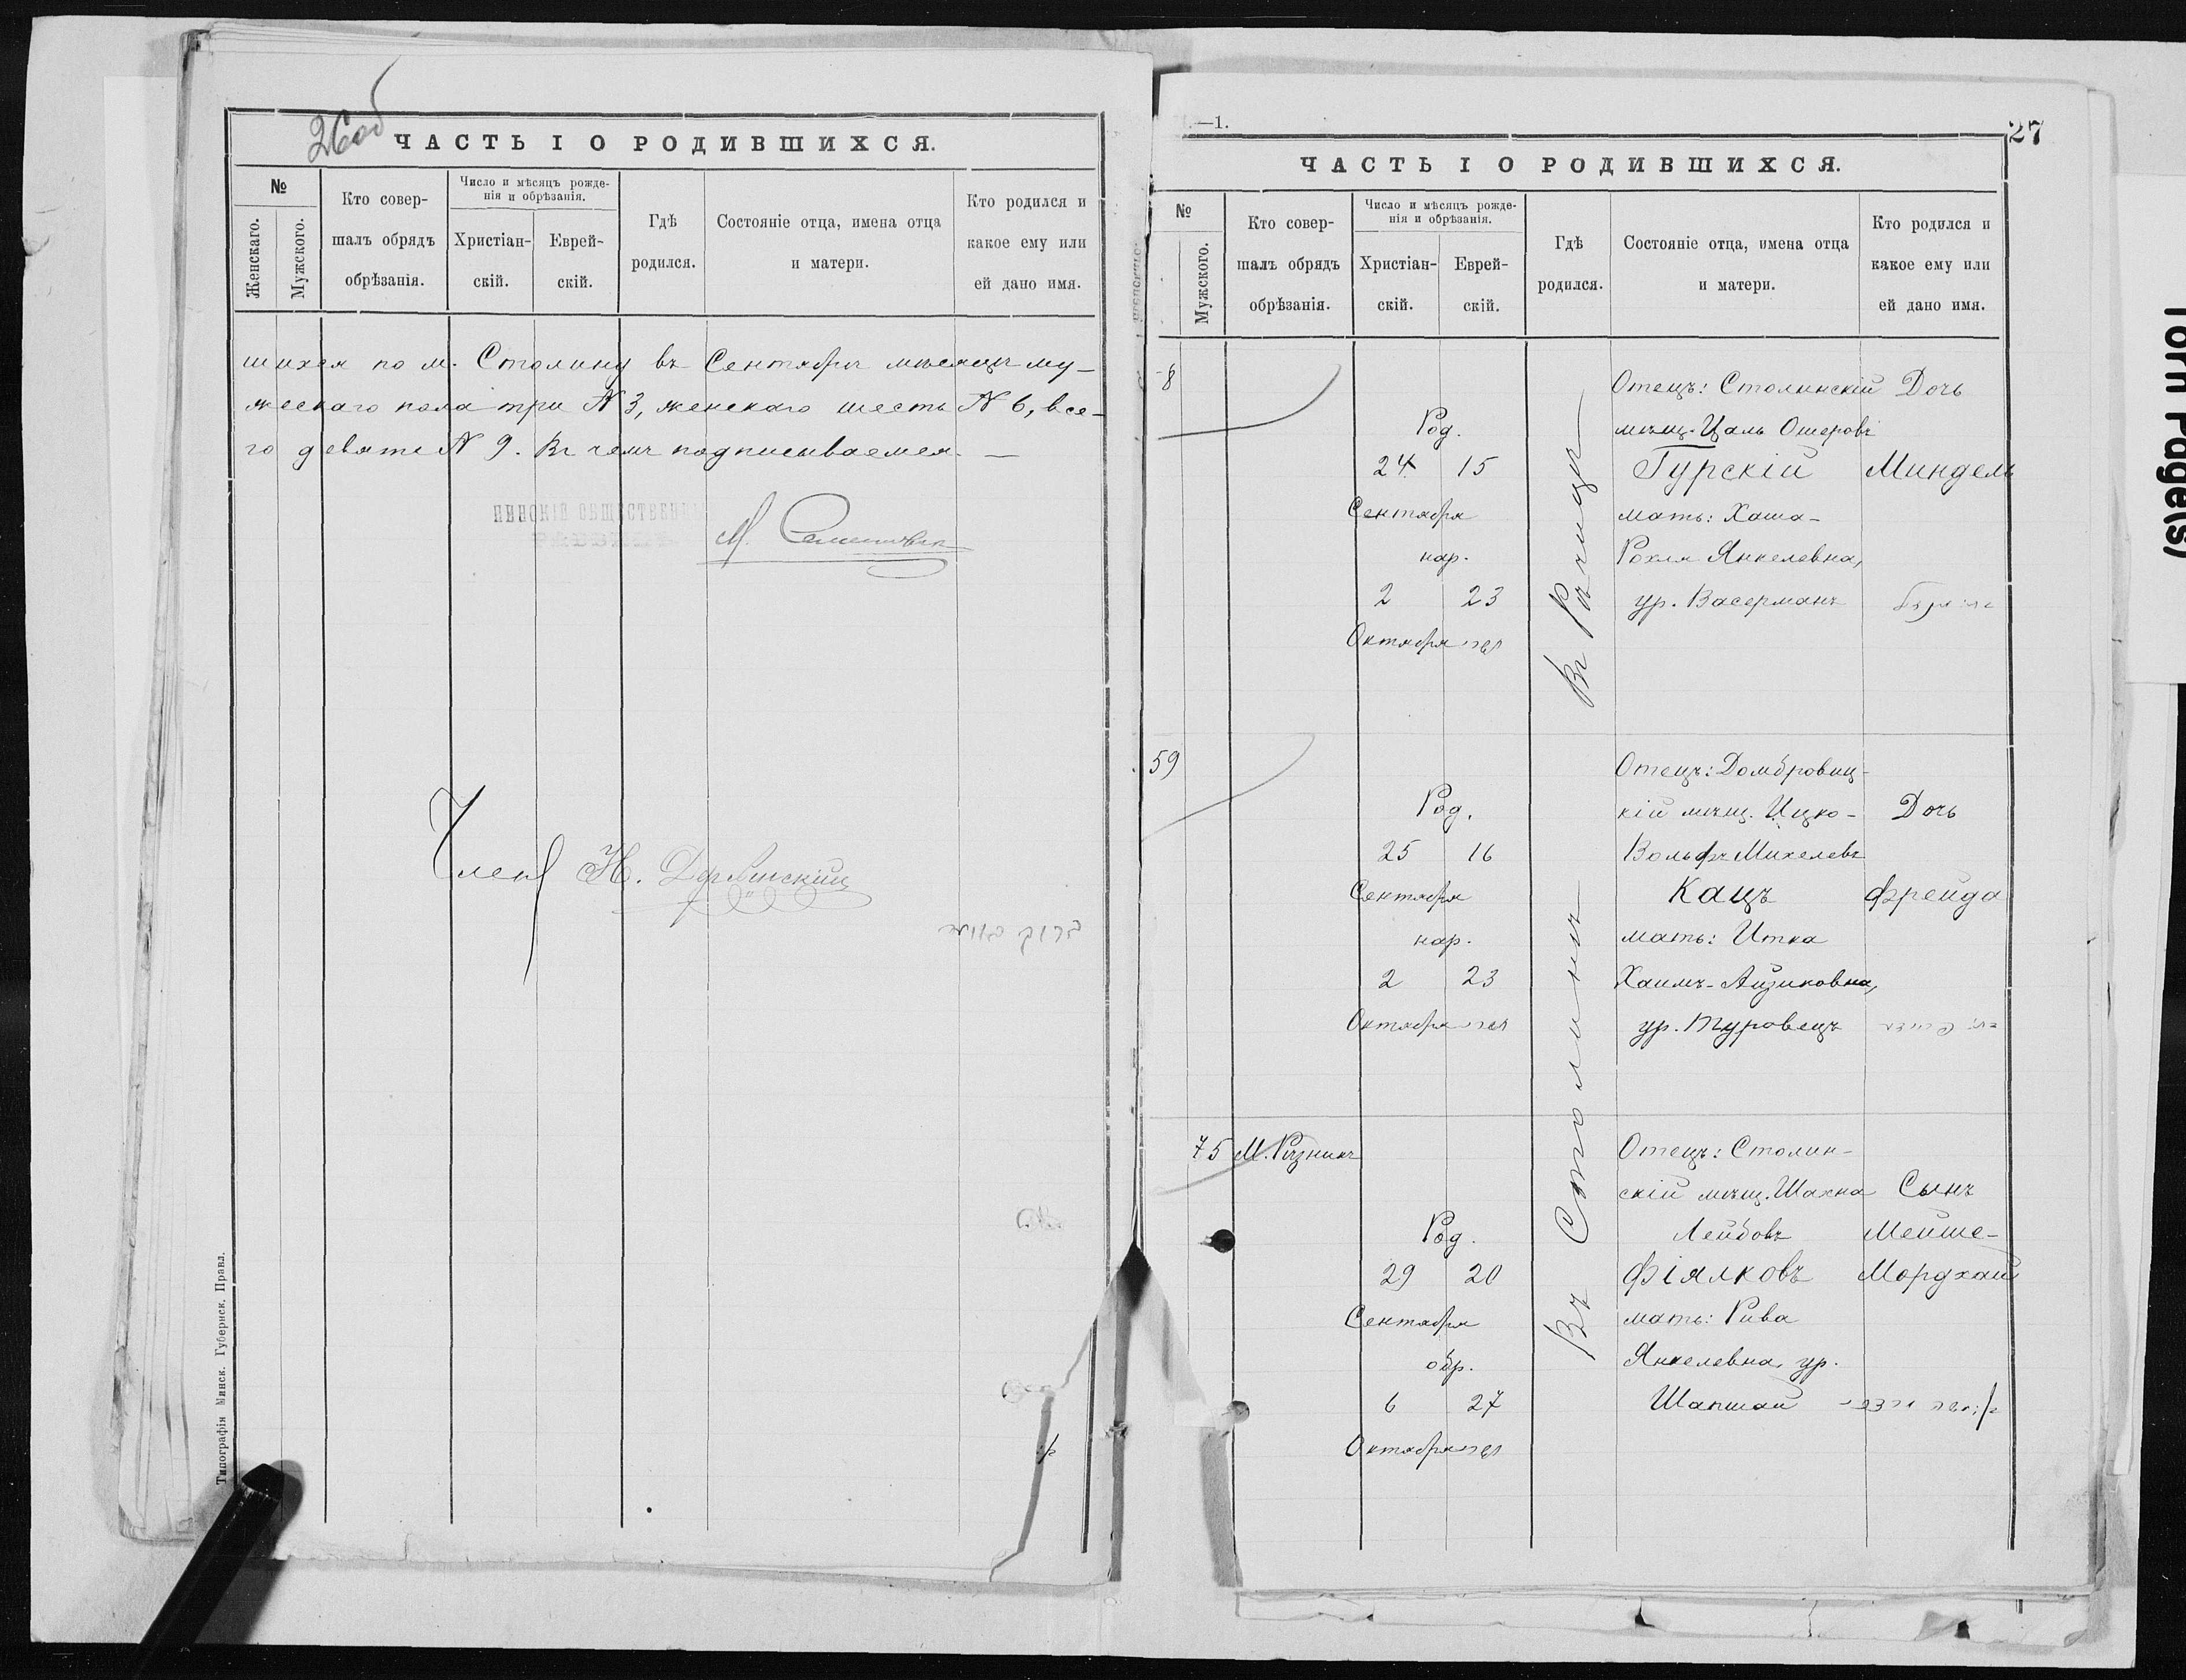 26об
ЧАСТЬ I О РОДИВШИХСЯ.
№
Женскаго.
Мужского.
Кто совер-
шалъ обрядъ
обрѣзанія.
Число и мѣсяцъ рожде-
нія и обрѣзанія.
Христіан-
скій.
Еврей-
скій.
Гдѣ
родился.
Состояніе отца, имена отца
и матери.
Кто родился и
какое ему или
ей дано имя.
шихся по м. Столину въ Сентябрѣ мѣсяцѣ му-
жескаго пола три N 3, женскаго шесть N 6, все-
го девять N 9. Въ чемъ подписываемся. —
ПИНСКІЙ ОБЩЕСТВЕННЫ
М.
Членъ Н.
Типографія Минск. Губернск. Правл.
—1.
27
ЧАСТЬ I О РОДИВШИХСЯ.
№
Мужского.
Кто совер-
шалъ обрядъ
обрѣзанія.
Число и мѣсяцъ рожде-
нія и обрѣзанія.
Христіан-
скій.
Еврей-
скій.
Гдѣ
родился.
Состояніе отца, имена отца
и матери.
Кто родился и
какое ему или
ей дано имя.
8
Род.
24 15
Сентября
нар.
2 23
Октября תשרי
Въ
Отецъ: Столинскій
мѣщ. Цаль Ошеровъ
Гурскій
мать: Хаша-
Рохля Янкелевна,
ур. Васерманъ
Дочь
Миндель
59
Род.
25 16
Сентября
нар.
2 23
Октября תשרי
Въ Столинѣ
Отецъ: Домбровиц-
кій мѣщ. Ицко-
Вольфъ Михелевъ
Кацъ
мать: Итка
Хаимъ-Айзиковна,
ур. Туровецъ
Дочь
Фрейда
75
М. Рѣзникъ
Род.
29 20
Сентября
обр.
6 27
Октября תשרי
Отецъ: Столин-
скій мѣщ. Шахна
Лейбовъ
Фіялковъ
мать: Рива
Янкелевна, ур.
Шапшай
Сынъ
Мейше-
Мордхай